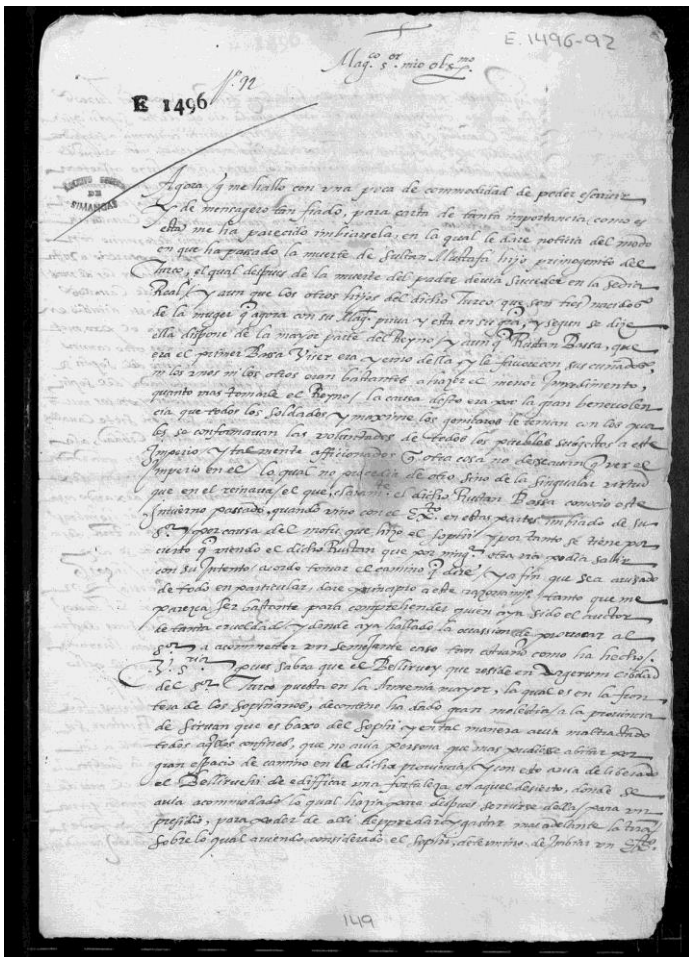 E. 1496-92
Mag.co s.or mio obs.mo
N.o 92
E 1496
ARCHIVO GENERAL
DE
SIMANCAS
Agora q me hallo con vna poca de commodidad de poder escriuir
y de mensagero tan fiado, para carta de tanta importancia (como es
esta) me ha parecido imbiarsela, en la qual le dare noticia del modo
en que ha passado la muerte de Sultan Mustafa hijo primogenito del
Turco, el qual despues de la muerte del padre deuia suceder en la sedia
Real, y aun que los otros hijos del dicho Turco, que son tres nacidos
de la muger q agora con su Mag.d priua y esta en su gra, y segun se dize
ella dispone de la mayor parte del Reyno, y aunq Rustan Bassa, que
era el primer Bassa Viser era yerno della y le fauorecian sus cuñados,
ni los vnos ni los otros eran bastantes a hazer el menor impedimento,
quanto mas tomarle el Reyno, la causa desto era por la gran beneuolen
cia que todos los soldados, y maxime los genitzaros le tenian con los qua
les se conformauan las voluntades de todos los pueblos subgectos a este
Imperio, y talmente afficionados q otra cosa no desseauan q ver el
imperio en el, lo qual no procedia de otro sino de la singular virtud
que en el reinaua, el que claram.te el dicho Rustan Bassa conocio este
inuierno passado, quando vino con el ex.to en estas partes imbiado de su
s.or y por causa del motiu que hizo el Sophi, y por tanto se tiene por
cierto q viendo el dicho Rustan que por ning.a otra via podia salir
con su intento, acordo tomar el camino q dire, y a fin que sea auisado
de todo en particular, dare principio a este razonamie.to tanto que me
paresca ser bastante para comprehender quien aya sido el auctor
de tanta crueldad, y dende aya hallado la ocasion de prouocar al
s.or a acommetter vn semejante caso tan estraño como ha hecho.
V. s.ria pues sabra que el Belliruey que reside en Argerum ciudad
del s.or Turco puesta en la Armenia mayor, la qual es en la fron
tera de los Sophianos, de contino ha dado gran molestia a la prouincia
de Siruan que es baxo del Sophi, y en tal manera auia maltractado
todos aqllos confines, que no auia persona que mas pudiesse abitar por
gran espacio de camino en la dicha prouincia, y con esto auia deliberado
el Belliruehi de edifficar vna fortaleza en aquel desierto, donde se
auia acommodado, lo qual hazia para despues seruirse della, para vn
presidio, para poder de alli despredar y gastar mas adelante la tierra,
sobre lo qual auiendo considerado el Sophi, determino de imbiar vn ex.to
149